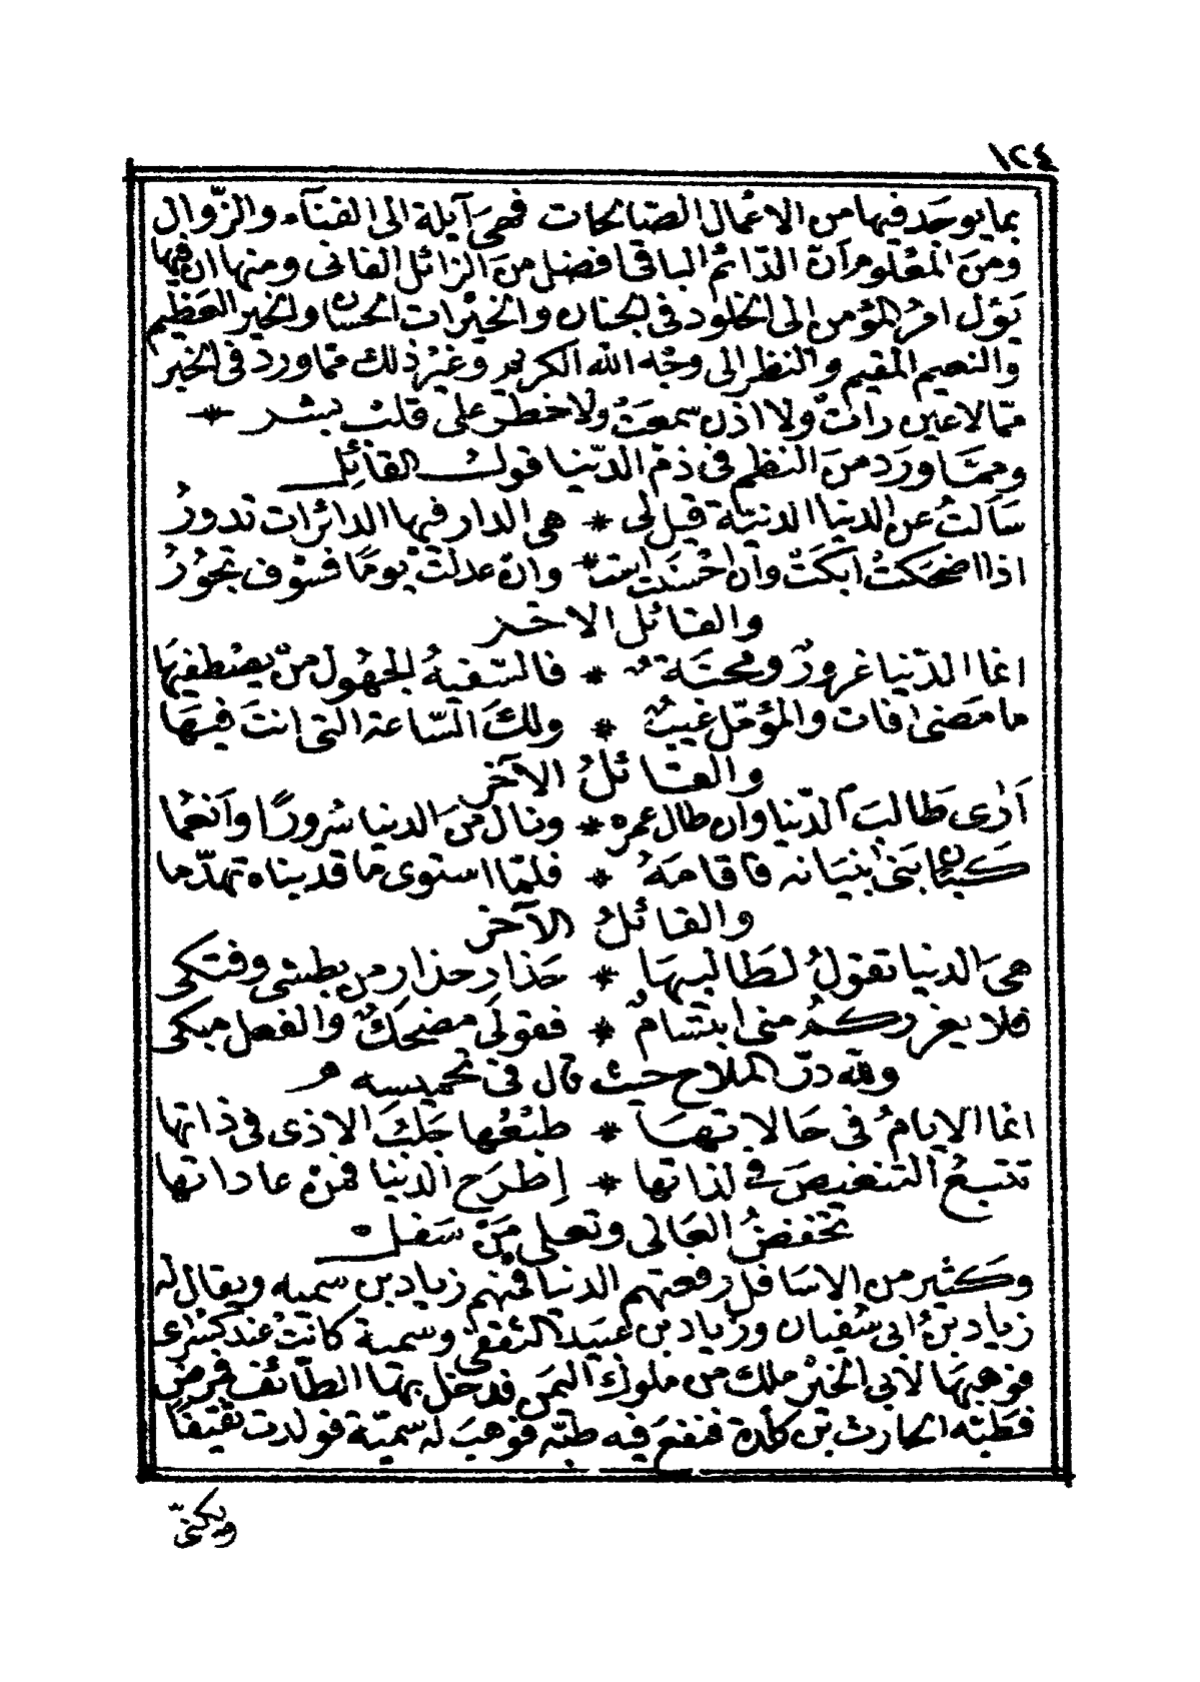 ١٢٤
بما يوجد فيها من الاعمال الصالحات فهي آيلة الى الفنآء والزّوال
ومن المعْلوم أنّ الدّائم الباقي افضل من الزائل الفاني ومنها ان فيها
يَؤل امرُ المؤمن الى الخلود في الجنان والخيْرات الحسان والخير العظيم
والنعيم المقيم والنظر الى وجْه الله الكريم وغيْر ذلك ممّا ورد في الخير
ممّا لا عين رأت ولا اذن سمعتْ ولا خطر على قلب بشر *
وممّا ورَد منَ النظم في ذمّ الدّنيا قول القائل
سَألتُ عن الدنيا الدنيّة قيل لى * هى الدار فيها الدائرات تدورُ
اذا اضحكتْ ابكَتْ وان احْسنَت اسَت * وانْ عدلتْ يومًا فسَوْف تجورُ
والقائل الاخر
انما الدّنيا غرورٌ ومحنَة * فالسّفيهُ الجهُول منْ يصْطفيهَا
ما مَضىٰ فات والمؤمّل غيبٌ * ولكَ السّاعة التى انتَ فيهَا
والقائلُ الآخر
أرٰى طَالبَ الدّنيا وان طال عمره * ونال منَ الدنيا سُرورًا وَأنعُما
كبَانٍ بَنىٰ بنيَانه فاقامَهُ * فلمّا استوى ما قد بناه تهدّما
والقائلُ الآخر
هىَ الدنيا تقولُ لطَالبيهَا * حَذار حذار من بطشى وفتكى
فلا يغرركمُ منى ابتسَامٌ * فقولى مضحِكٌ والفعل مبكى
ولله درّ الملاح حيث قال فى تخميسه
انما الايامُ فى حَالاتهَا * طبْعُها جَلبَ الاذى فى ذاتها
تتبعُ التنغيصَ فى لذاتها * إطْرَح الدنيا فمنْ عاداتها
تخفضُ العَالى وتعلى مَنْ سَفل
وكثير من الاسَافل رفعتهم الدنيا فمنهم زياد بن سميه ويقال له
زياد بنُ ابى سُفيان وزياد بن عبَيد الثقفى وسمية كانتْ عند كسْرٰى
فوهبَهَا لابى الخيْر ملك من ملوك اليمَن فدخل بها الطّائف فمرض
فطبّه الحارث بن كلدة فنفعَ فيه طبّه فوهبَ له سميّة فولدت ثقيفًا
ويكنىّ